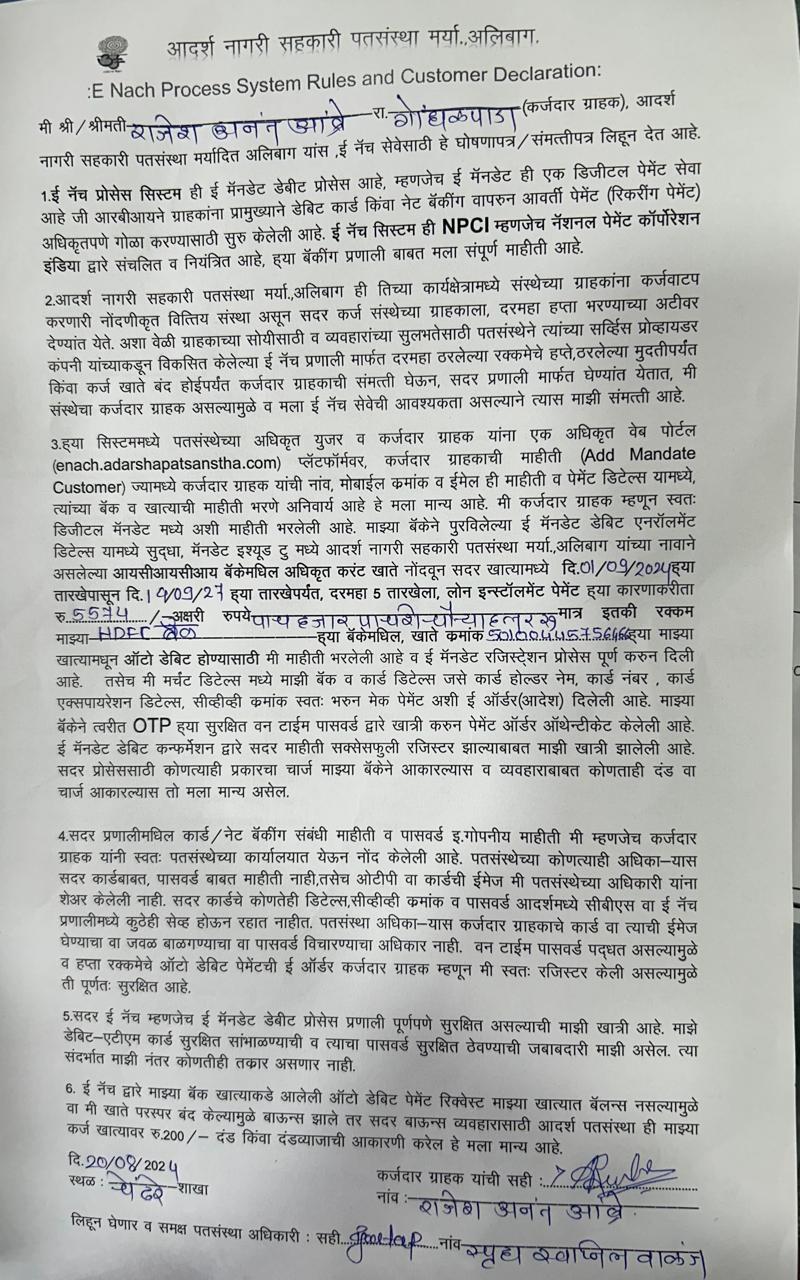 आदर्श नागरी सहकारी पतसंस्था मर्या.,अलिबाग.
:E Nach Process System Rules and Customer Declaration:
मी श्री/श्रीमती राजेश अनंत आंब्रे रा. गोंधळपाडा (कर्जदार ग्राहक), आदर्श
नागरी सहकारी पतसंस्था मर्यादित अलिबाग यांस ,ई नॅच सेवेसाठी हे घोषणापत्र/संमत्तीपत्र लिहून देत आहे.
1.ई नॅच प्रोसेस सिस्टम ही ई मॅनडेट डेबीट प्रोसेस आहे, म्हणजेच ई मॅनडेट ही एक डिजीटल पेमेंट सेवा
आहे जी आरबीआयने ग्राहकांना प्रामुख्याने डेबिट कार्ड किंवा नेट बॅकींग वापरुन आवर्ती पेमेंट (रिकरींग पेमेंट)
अधिकृतपणे गोळा करण्यासाठी सुरु केलेली आहे. ई नॅच सिस्टम ही NPCI म्हणजेच नॅशनल पेमेंट कॉर्पोरेशन
इंडिया द्वारे संचलित व नियंत्रित आहे, ह्या बॅकींग प्रणाली बाबत मला संपूर्ण माहीती आहे.
2.आदर्श नागरी सहकारी पतसंस्था मर्या.,अलिबाग ही तिच्या कार्यक्षेत्रामध्ये संस्थेच्या ग्राहकांना कर्जवाटप
करणारी नोंदणीकृत वित्तिय संस्था असून सदर कर्ज संस्थेच्या ग्राहकाला, दरमहा हप्ता भरण्याच्या अटीवर
देण्यांत येते. अशा वेळी ग्राहकाच्या सोयीसाठी व व्यवहारांच्या सुलभतेसाठी पतसंस्थेने त्यांच्या सर्व्हिस प्रोव्हायडर
कंपनी यांच्याकडून विकसित केलेल्या ई नॅच प्रणाली मार्फत दरमहा ठरलेल्या रक्कमेचे हप्ते,ठरलेल्या मुदतीपर्यंत
किंवा कर्ज खाते बंद होईपर्यंत कर्जदार ग्राहकाची संमत्ती घेऊन, सदर प्रणाली मार्फत घेण्यांत येतात, मी
संस्थेचा कर्जदार ग्राहक असल्यामुळे व मला ई नॅच सेवेची आवश्यकता असल्याने त्यास माझी संमत्ती आहे.
3.ह्या सिस्टममध्ये पतसंस्थेच्या अधिकृत युजर व कर्जदार ग्राहक यांना एक अधिकृत वेब पोर्टल
(enach.adarshapatsanstha.com) प्लॅटफॉर्मवर, कर्जदार ग्राहकाची माहीती (Add Mandate
Customer) ज्यामध्ये कर्जदार ग्राहक यांची नांव, मोबाईल क्रमांक व ईमेल ही माहीती व पेमेंट डिटेल्स यामध्ये,
त्यांच्या बॅक व खात्याची माहीती भरणे अनिवार्य आहे हे मला मान्य आहे. मी कर्जदार ग्राहक म्हणून स्वतः
डिजीटल मॅनडेट मध्ये अशी माहीती भरलेली आहे. माझ्या बॅकेने पुरविलेल्या ई मॅनडेट डेबिट एनरोलमेंट
डिटेल्स यामध्ये सुद्धा, मॅनडेट इश्यूड टु मध्ये आदर्श नागरी सहकारी पतसंस्था मर्या.,अलिबाग यांच्या नावाने
असलेल्या आयसीआयसीआय बॅकेमधिल अधिकृत करंट खाते नोंदवून सदर खात्यामध्ये दि.01/09/2024 ह्या
तारखेपासून दि.14/09/27 ह्या तारखेपर्यंत, दरमहा 5 तारखेला, लोन इन्स्टॉलमेंट पेमेंट ह्या कारणाकरीता
रु.5574/-अक्षरी रुपये पाच हजार पाचशे चौऱ्याहत्तर रु मात्र इतकी रक्कम
माझ्या HDFC बँक ह्या बॅकेमधिल, खाते क्रमांक 50100445756466 ह्या माझ्या
खात्यामधून ऑटो डेबिट होण्यासाठी मी माहीती भरलेली आहे व ई मॅनडेट रजिस्ट्रेशन प्रोसेस पूर्ण करुन दिली
आहे. तसेच मी मर्चंट डिटेल्स मध्ये माझी बॅक व कार्ड डिटेल्स जसे कार्ड होल्डर नेम, कार्ड नंबर , कार्ड
एक्सपायरेशन डिटेल्स, सीव्हीव्ही क्रमांक स्वतः भरुन मेक पेमेंट अशी ई ऑर्डर(आदेश) दिलेली आहे. माझ्या
बॅकेने त्वरीत OTP ह्या सुरक्षित वन टाईम पासवर्ड द्वारे खात्री करुन पेमेंट ऑर्डर ऑथेन्टीकेट केलेली आहे.
ई मॅनडेट डेबिट कन्फर्मेशन द्वारे सदर माहीती सक्सेसफुली रजिस्टर झाल्याबाबत माझी खात्री झालेली आहे.
सदर प्रोसेससाठी कोणत्याही प्रकारचा चार्ज माझ्या बॅकेने आकारल्यास व व्यवहाराबाबत कोणताही दंड वा
चार्ज आकारल्यास तो मला मान्य असेल.
4.सदर प्रणालीमधिल कार्ड/नेट बॅकींग संबंधी माहीती व पासवर्ड इ.गोपनीय माहीती मी म्हणजेच कर्जदार
ग्राहक यांनी स्वतः पतसंस्थेच्या कार्यालयात येऊन नोंद केलेली आहे. पतसंस्थेच्या कोणत्याही अधिका–यास
सदर कार्डबाबत, पासवर्ड बाबत माहीती नाही,तसेच ओटीपी वा कार्डची ईमेज मी पतसंस्थेच्या अधिकारी यांना
शेअर केलेली नाही. सदर कार्डचे कोणतेही डिटेल्स,सीव्हीव्ही क्रमांक व पासवर्ड आदर्शमध्ये सीबीएस वा ई नॅच
प्रणालीमध्ये कुठेही सेव्ह होऊन रहात नाहीत. पतसंस्था अधिका–यास कर्जदार ग्राहकाचे कार्ड वा त्याची ईमेज
घेण्याचा वा जवळ बाळगण्याचा वा पासवर्ड विचारण्याचा अधिकार नाही. वन टाईम पासवर्ड पद्धत असल्यामुळे
व हप्ता रक्कमेचे ऑटो डेबिट पेमेंटची ई ऑर्डर कर्जदार ग्राहक म्हणून मी स्वतः रजिस्टर केली असल्यामुळे
ती पूर्णतः सुरक्षित आहे.
5.सदर ई नॅच म्हणजेच ई मॅनडेट डेबीट प्रोसेस प्रणाली पूर्णपणे सुरक्षित असल्याची माझी खात्री आहे. माझे
डेबिट–एटीएम कार्ड सुरक्षित सांभाळण्याची व त्याचा पासवर्ड सुरक्षित ठेवण्याची जबाबदारी माझी असेल. त्या
संदर्भात माझी नंतर कोणतीही तक्रार असणार नाही.
6. ई नॅच द्वारे माझ्या बॅक खात्याकडे आलेली ऑटो डेबिट पेमेंट रिक्वेस्ट माझ्या खात्यात बॅलन्स नसल्यामुळे
वा मी खाते परस्पर बंद केल्यामुळे बाऊन्स झाले तर सदर बाऊन्स व्यवहारासाठी आदर्श पतसंस्था ही माझ्या
कर्ज खात्यावर रु.200/– दंड किंवा दंडव्याजाची आकारणी करेल हे मला मान्य आहे.
दि.20/08/2024
कर्जदार ग्राहक यांची सही :
स्थळ : चेंढरे शाखा
नांव : राजेश अनंत आंब्रे
लिहून घेणार व समक्ष पतसंस्था अधिकारी : सही नांव स्पृहा स्वाप्निल वाळंज